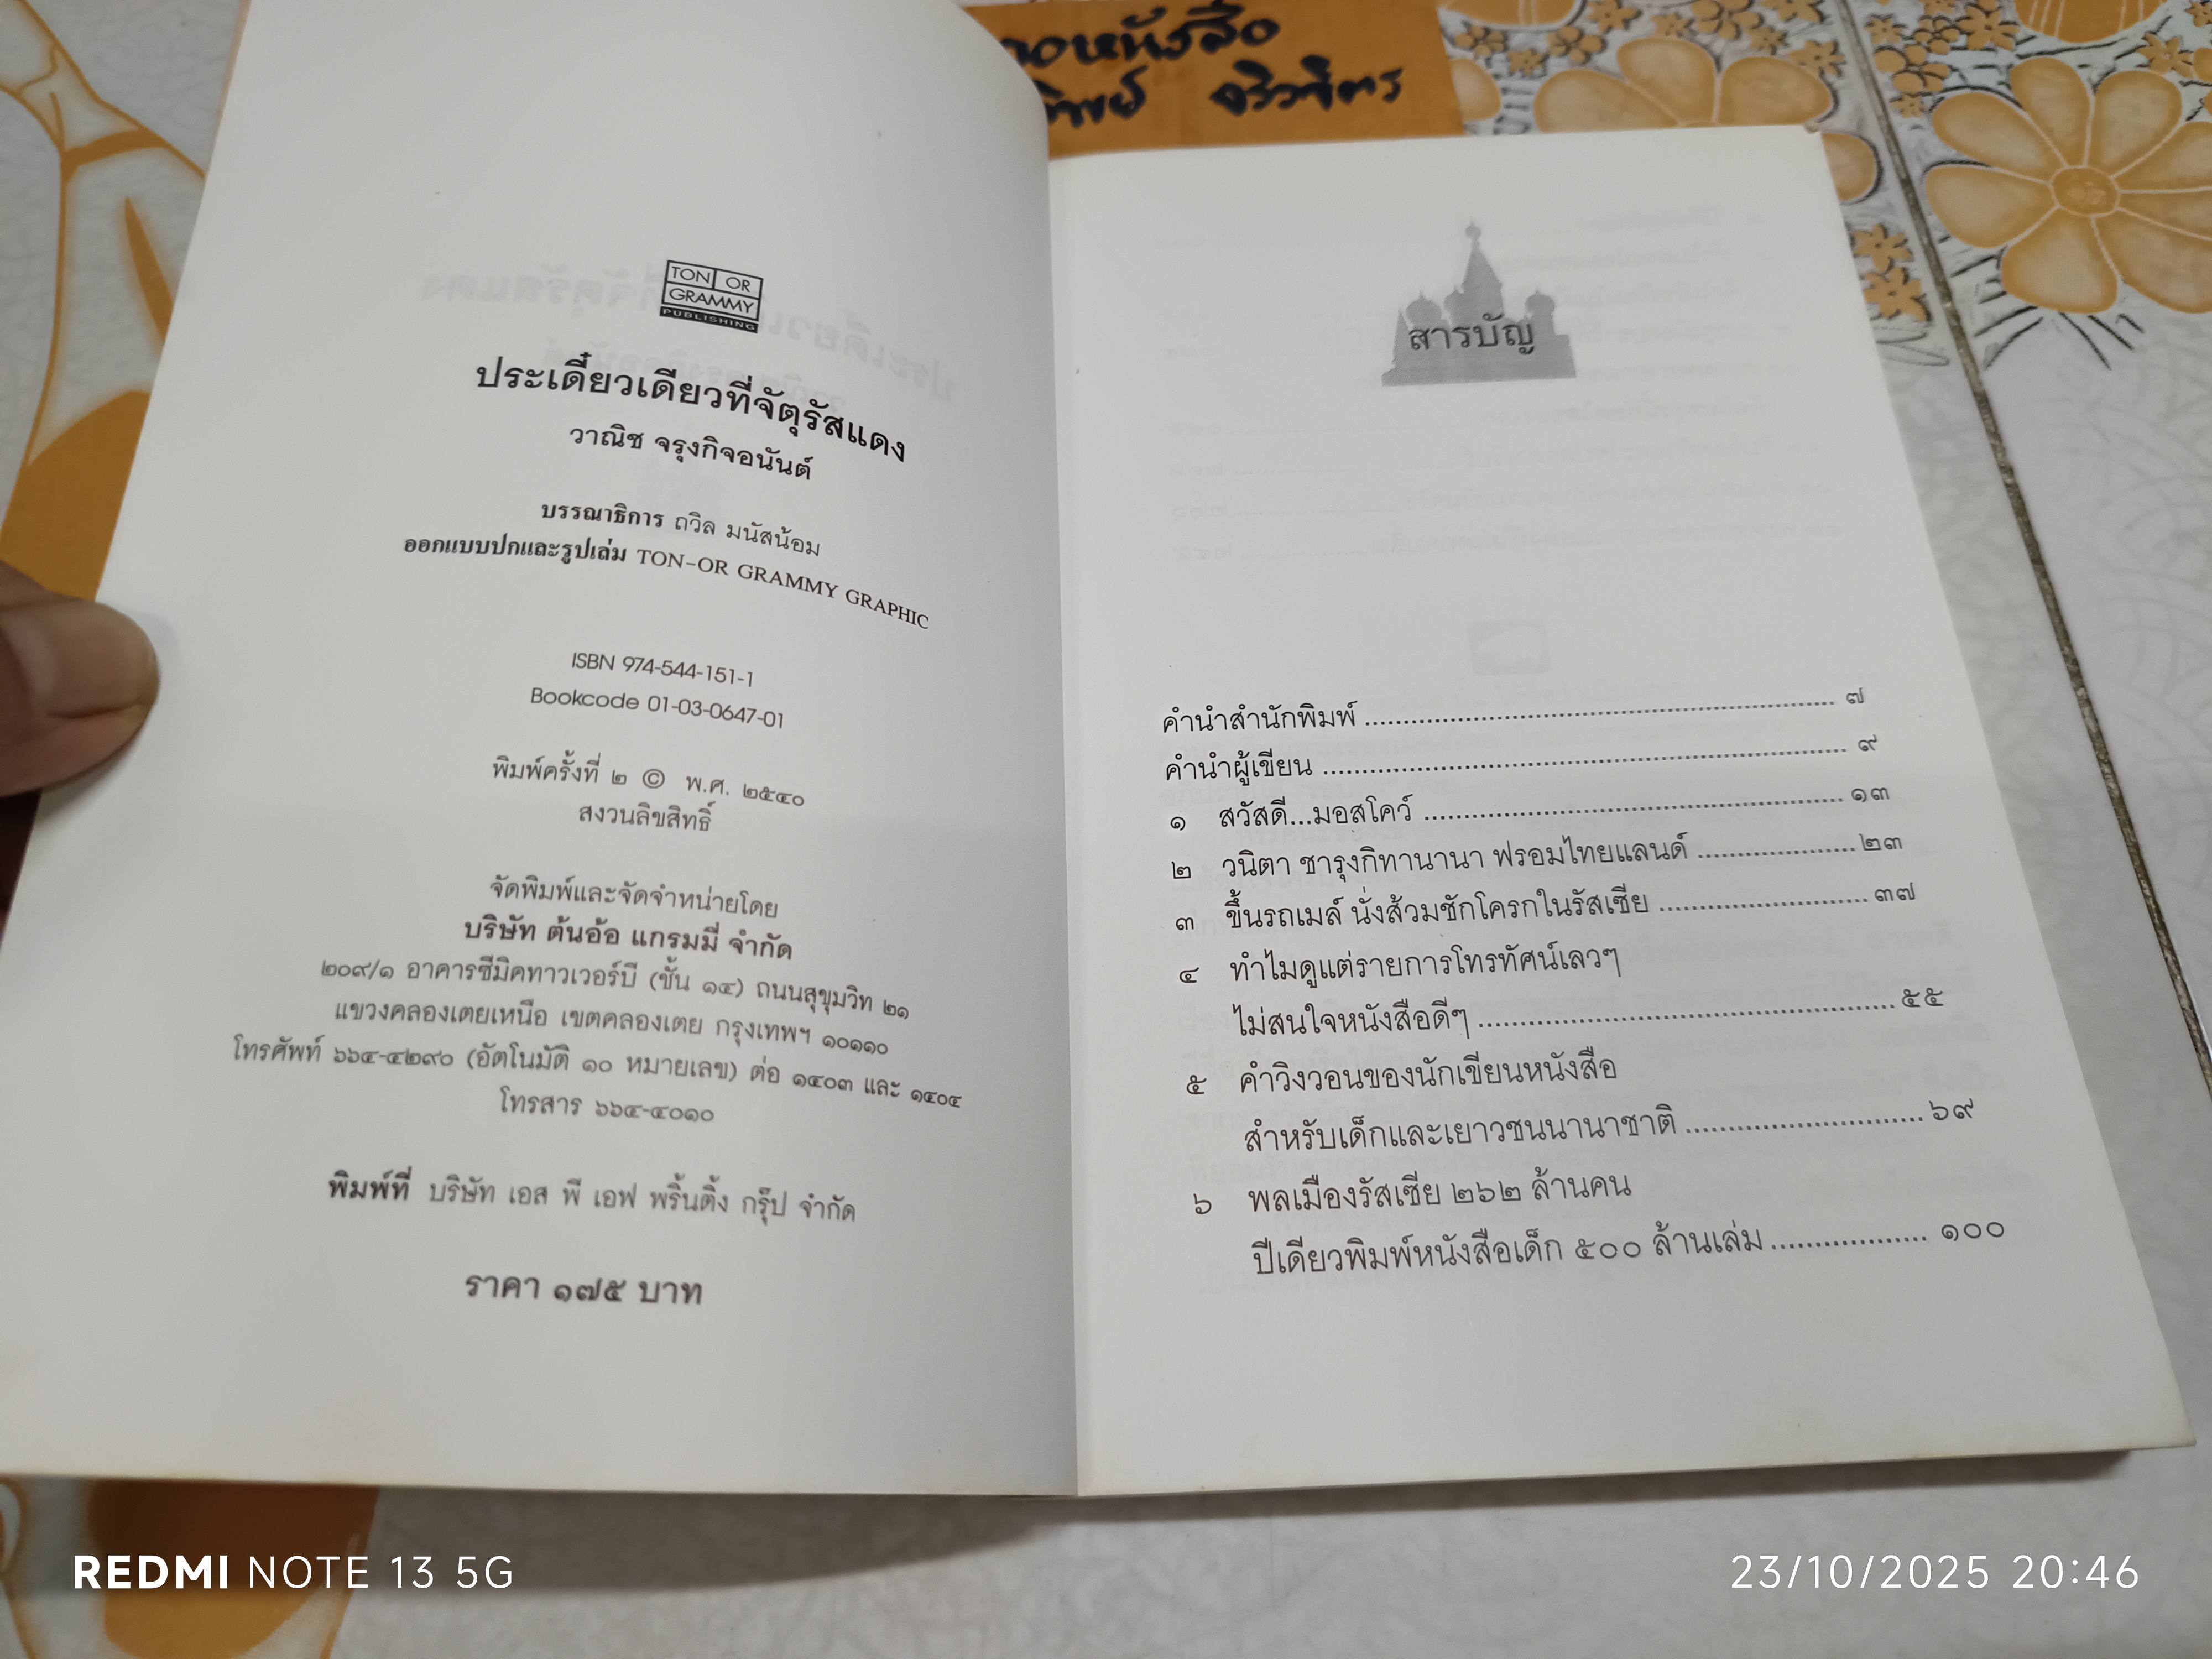 TON OR
GRAMMY
PUBLISHING
ประเดี๋ยวเดียวที่จัตุรัสแดง
วาณิช จรุงกิจอนันต์
บรรณาธิการ ถวิล มนัสน้อม
ออกแบบปกและรูปเล่ม TON-OR GRAMMY GRAPHIC
ISBN 974-544-151-1
Bookcode 01-03-0647-01
พิมพ์ครั้งที่ ๒ © พ.ศ. ๒๕๔๐
สงวนลิขสิทธิ์
จัดพิมพ์และจัดจำหน่ายโดย
บริษัท ต้นอ้อ แกรมมี่ จำกัด
๒๐๙/๑ อาคารซีมิคทาวเวอร์บี (ชั้น ๑๔) ถนนสุขุมวิท ๒๑
แขวงคลองเตยเหนือ เขตคลองเตย กรุงเทพฯ ๑๐๑๑๐
โทรศัพท์ ๖๖๔-๔๒๙๐ (อัตโนมัติ ๑๐ หมายเลข) ต่อ ๑๔๐๓ และ ๑๔๐๔
โทรสาร ๖๖๔-๔๐๑๐
พิมพ์ที่ บริษัท เอส พี เอฟ พริ้นติ้ง กรุ๊ป จำกัด
ราคา ๑๗๕ บาท
สารบัญ
คำนำสำนักพิมพ์ ........................ ๗
คำนำผู้เขียน ........................ ๙
๑ สวัสดี...มอสโคว์ ........................ ๑๓
๒ วนิตา ชารุงกิทานานา ฟรอมไทยแลนด์ ........................ ๒๓
๓ ขึ้นรถเมล์ นั่งส้วมชักโครกในรัสเซีย ........................ ๓๗
๔ ทำไมดูแต่รายการโทรทัศน์เลวๆ
ไม่สนใจหนังสือดีๆ ........................ ๕๕
๕ คำวิงวอนของนักเขียนหนังสือ
สำหรับเด็กและเยาวชนนานาชาติ ........................ ๖๙
๖ พลเมืองรัสเซีย ๒๖๒ ล้านคน
ปีเดียวพิมพ์หนังสือเด็ก ๕๐๐ ล้านเล่ม ........................ ๑๐๐
REDMI NOTE 13 5G
23/10/2025 20:46